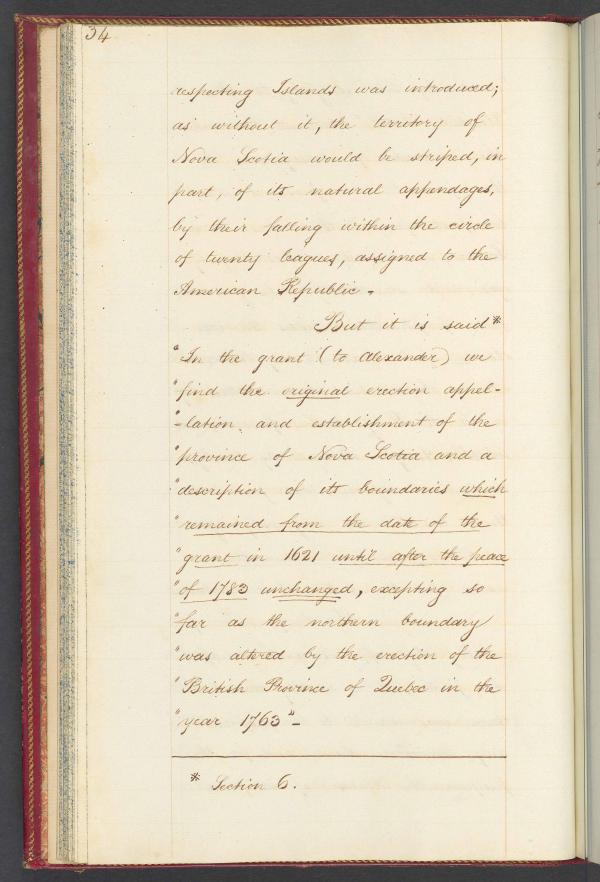 34
respecting Islands was introduced;
as without it, the territory of
Nova Scotia would be striped, in
part, of its natural appendages,
by their falling within the circle
of twenty leagues, assigned to the
American Republic.
But it is said*
"In the grant (to Alexander) we
"find the original erection appel-
"-lation, and establishment of the
"province of Nova Scotia and a
"description of its boundaries which
"remained from the date of the
"grant in 1621 until after the peace
"of 1783 unchanged, excepting so
"far as the northern boundary
"was altered by the erection of the
"British Province of Quebec in the
"year 1763"-
* Section 6.